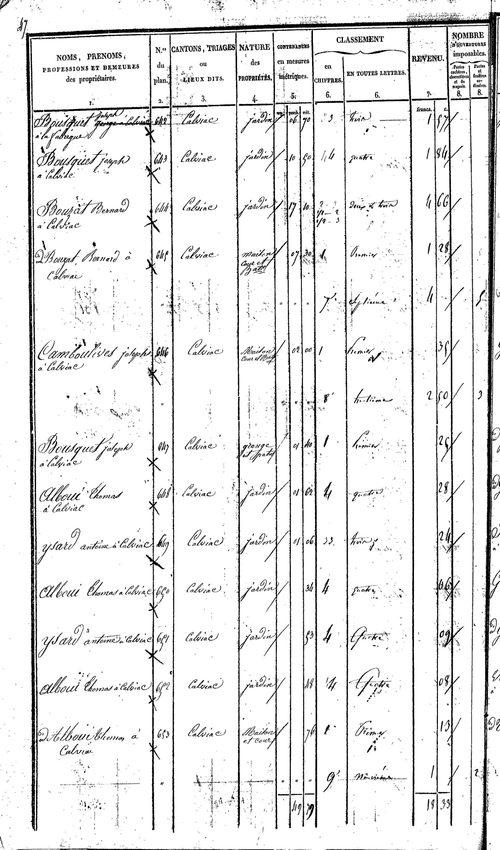 47
NOMS, PRENOMS, PROFESSIONS ET DEMEURES des propriétaires. 1.
N.os du plan. 2.
CANTONS, TRIAGES ou LIEUX DITS. 3.
NATURE des PROPRIÉTÉS. 4.
CONTENANCES en mesures métriques. 5.
CLASSEMENT
en CHIFFRES. 6.
EN TOUTES LETTRES. 6.
REVENU. 7.
NOMBRE D'OUVERTURES imposables.
8. 8.
francs. c.
Bousquet joseph à Calviac 642 Calviac jardin 06 70 3 trois 1 57
à la fabrique
Bousquet joseph 643 Calviac jardin 10 50 4 quatre 1 84
à Calviac
Bouzat Bernard 644 Calviac jardin 17 10 deux et trois 4 66
à Calviac
Bouzat Bernard à 645 Calviac maison 07 30 1 Premier 1 28
Calviac cour et
7 septieme 4 5
Camboulives joseph 646 Calviac Maison 02 00 1 Premier 35
à Calviac
8 huitieme 2 50 3
Bousquet joseph 647 Calviac grange 01 40 1 Premier 25
à Calviac
Alboui Thomas 648 Calviac jardin 01 62 4 quatre 28
à Calviac
ysard antoine à Calviac 649 Calviac jardin 01 06 trois 24
Alboui Thomas à Calviac 650 Calviac jardin 36 4 quatre 06
ysard antoine à Calviac 651 Calviac jardin 53 4 Quatre 09
Alboui Thomas à Calviac 652 Calviac jardin 48 4 Quatre 08
Alboui Thomas à 653 Calviac Maison 76 1 Premier 13
Calviac et cour
9 neuvieme 1 2
49 79 18 33